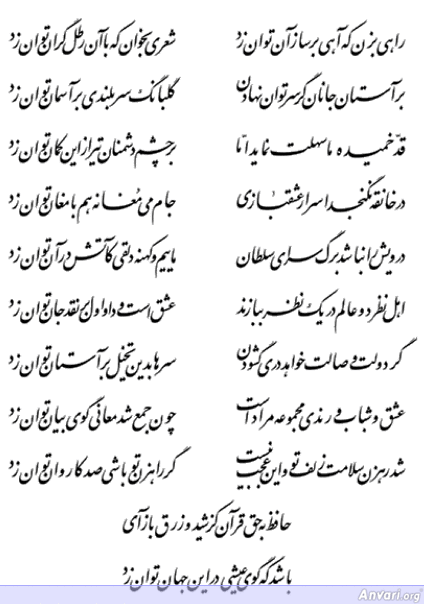 راهی بزن که آهی بر ساز آن توان زد شعری بخوان که با آن رطل گران توان زد
بر آستان جانان گر سر توان نهادن گلبانگ سربلندی بر آسمان توان زد
قدّ خمیده ما سهلت نماید امّا بر چشم دشمنان تیر از این کمان توان زد
در خانقه نگنجد اسرار عشقبازی جام می مغانه هم با مغان توان زد
درویش را نباشد برگ سرای سلطان ماییم و کهنه دلقی کآتش در آن توان زد
اهل نظر دو عالم در یک نظر ببازند عشق است و داو اول بر نقد جان توان زد
گر دولت وصالت خواهد دری گشودن سرها بدین تخیل بر آستان توان زد
عشق و شباب و رندی مجموعه مراد است چون جمع شد معانی گوی بیان توان زد
شد رهزن سلامت زلف تو وین عجب نیست گر راهزن تو باشی صد کاروان توان زد
حافظ به حق قرآن کز شید و زرق بازآی
باشد که گوی عیشی در این جهان توان زد
Anvari.org